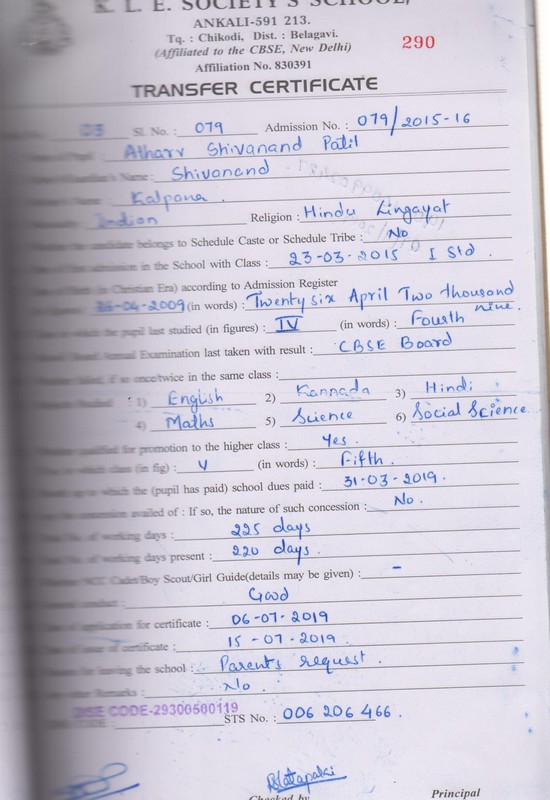 K. L. E. SOCIETY'S SCHOOL,
ANKALI-591 213.
Tq. : Chikodi, Dist. : Belagavi.
(Affiliated to the CBSE, New Delhi)
290
Affiliation No. 830391
TRANSFER CERTIFICATE
03 Sl. No. : 079 Admission No. : 079/2015-16
Atharv Shivanand Patil
Name : Shivanand
Name : Kalpana .
Indian Religion : Hindu Lingayat
candidate belongs to Schedule Caste or Schedule Tribe : No
admission in the School with Class : 23-03-2015 I Std .
(in Christian Era) according to Admission Register
26-04-2009 (in words) : Twenty six April Two thousand nine.
which the pupil last studied (in figures) : IV (in words) : Fourth
Annual Examination last taken with result : CBSE Board
if so once/twice in the same class :
1) English 2) Kannada 3) Hindi
4) Maths 5) Science 6) Social Science
for promotion to the higher class : Yes .
class (in fig) : V (in words) : Fifth .
up to which the (pupil has paid) school dues paid : 31-03-2019.
concession availed of : If so, the nature of such concession : No .
of working days : 225 days
of working days present : 220 days .
NCC Cadet/Boy Scout/Girl Guide(details may be given) : -
conduct : Good
of application for certificate : 06-07-2019
of issue of certificate : 15-07-2019.
leaving the school : Parents request .
Remarks : No .
DISE CODE-29300500119
CODE : STS No. : 006 206 466 .
Checked by Principal